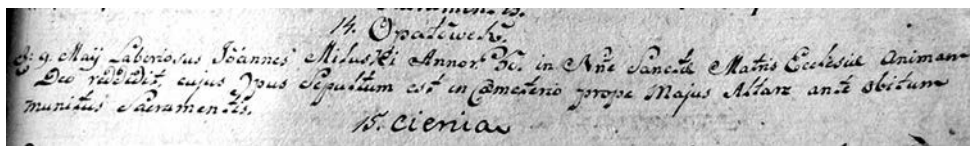 14. Opatówek.
D: 9. Maij Laboriosus Joannes Miluski Annor. 30. in Nne Sanctæ Matris Ecclesiæ Animam
Deo reddidit, cujus Cpus Sepultum est in Cæmeterio prope Majus Altare ante obitum
munitus Sacramentis.
15. Cienia